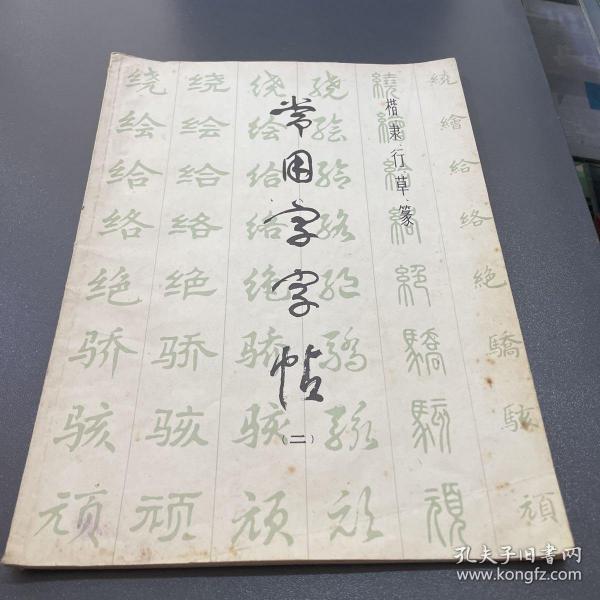 常用字字帖
(二)
楷隶行草篆
绕 绕 绕 绕 繞 繞
绘 绘 绘 绘 繪 繪
给 给 给 给 給 給
络 络 络 络 絡 絡
绝 绝 绝 绝 絕 絶
骄 骄 骄 驕 驕 驕
骇 骇 骇 骇 駭 駭
顽 顽 顽 顽 頑 頑
孔夫子旧书网
www.kongfz.com